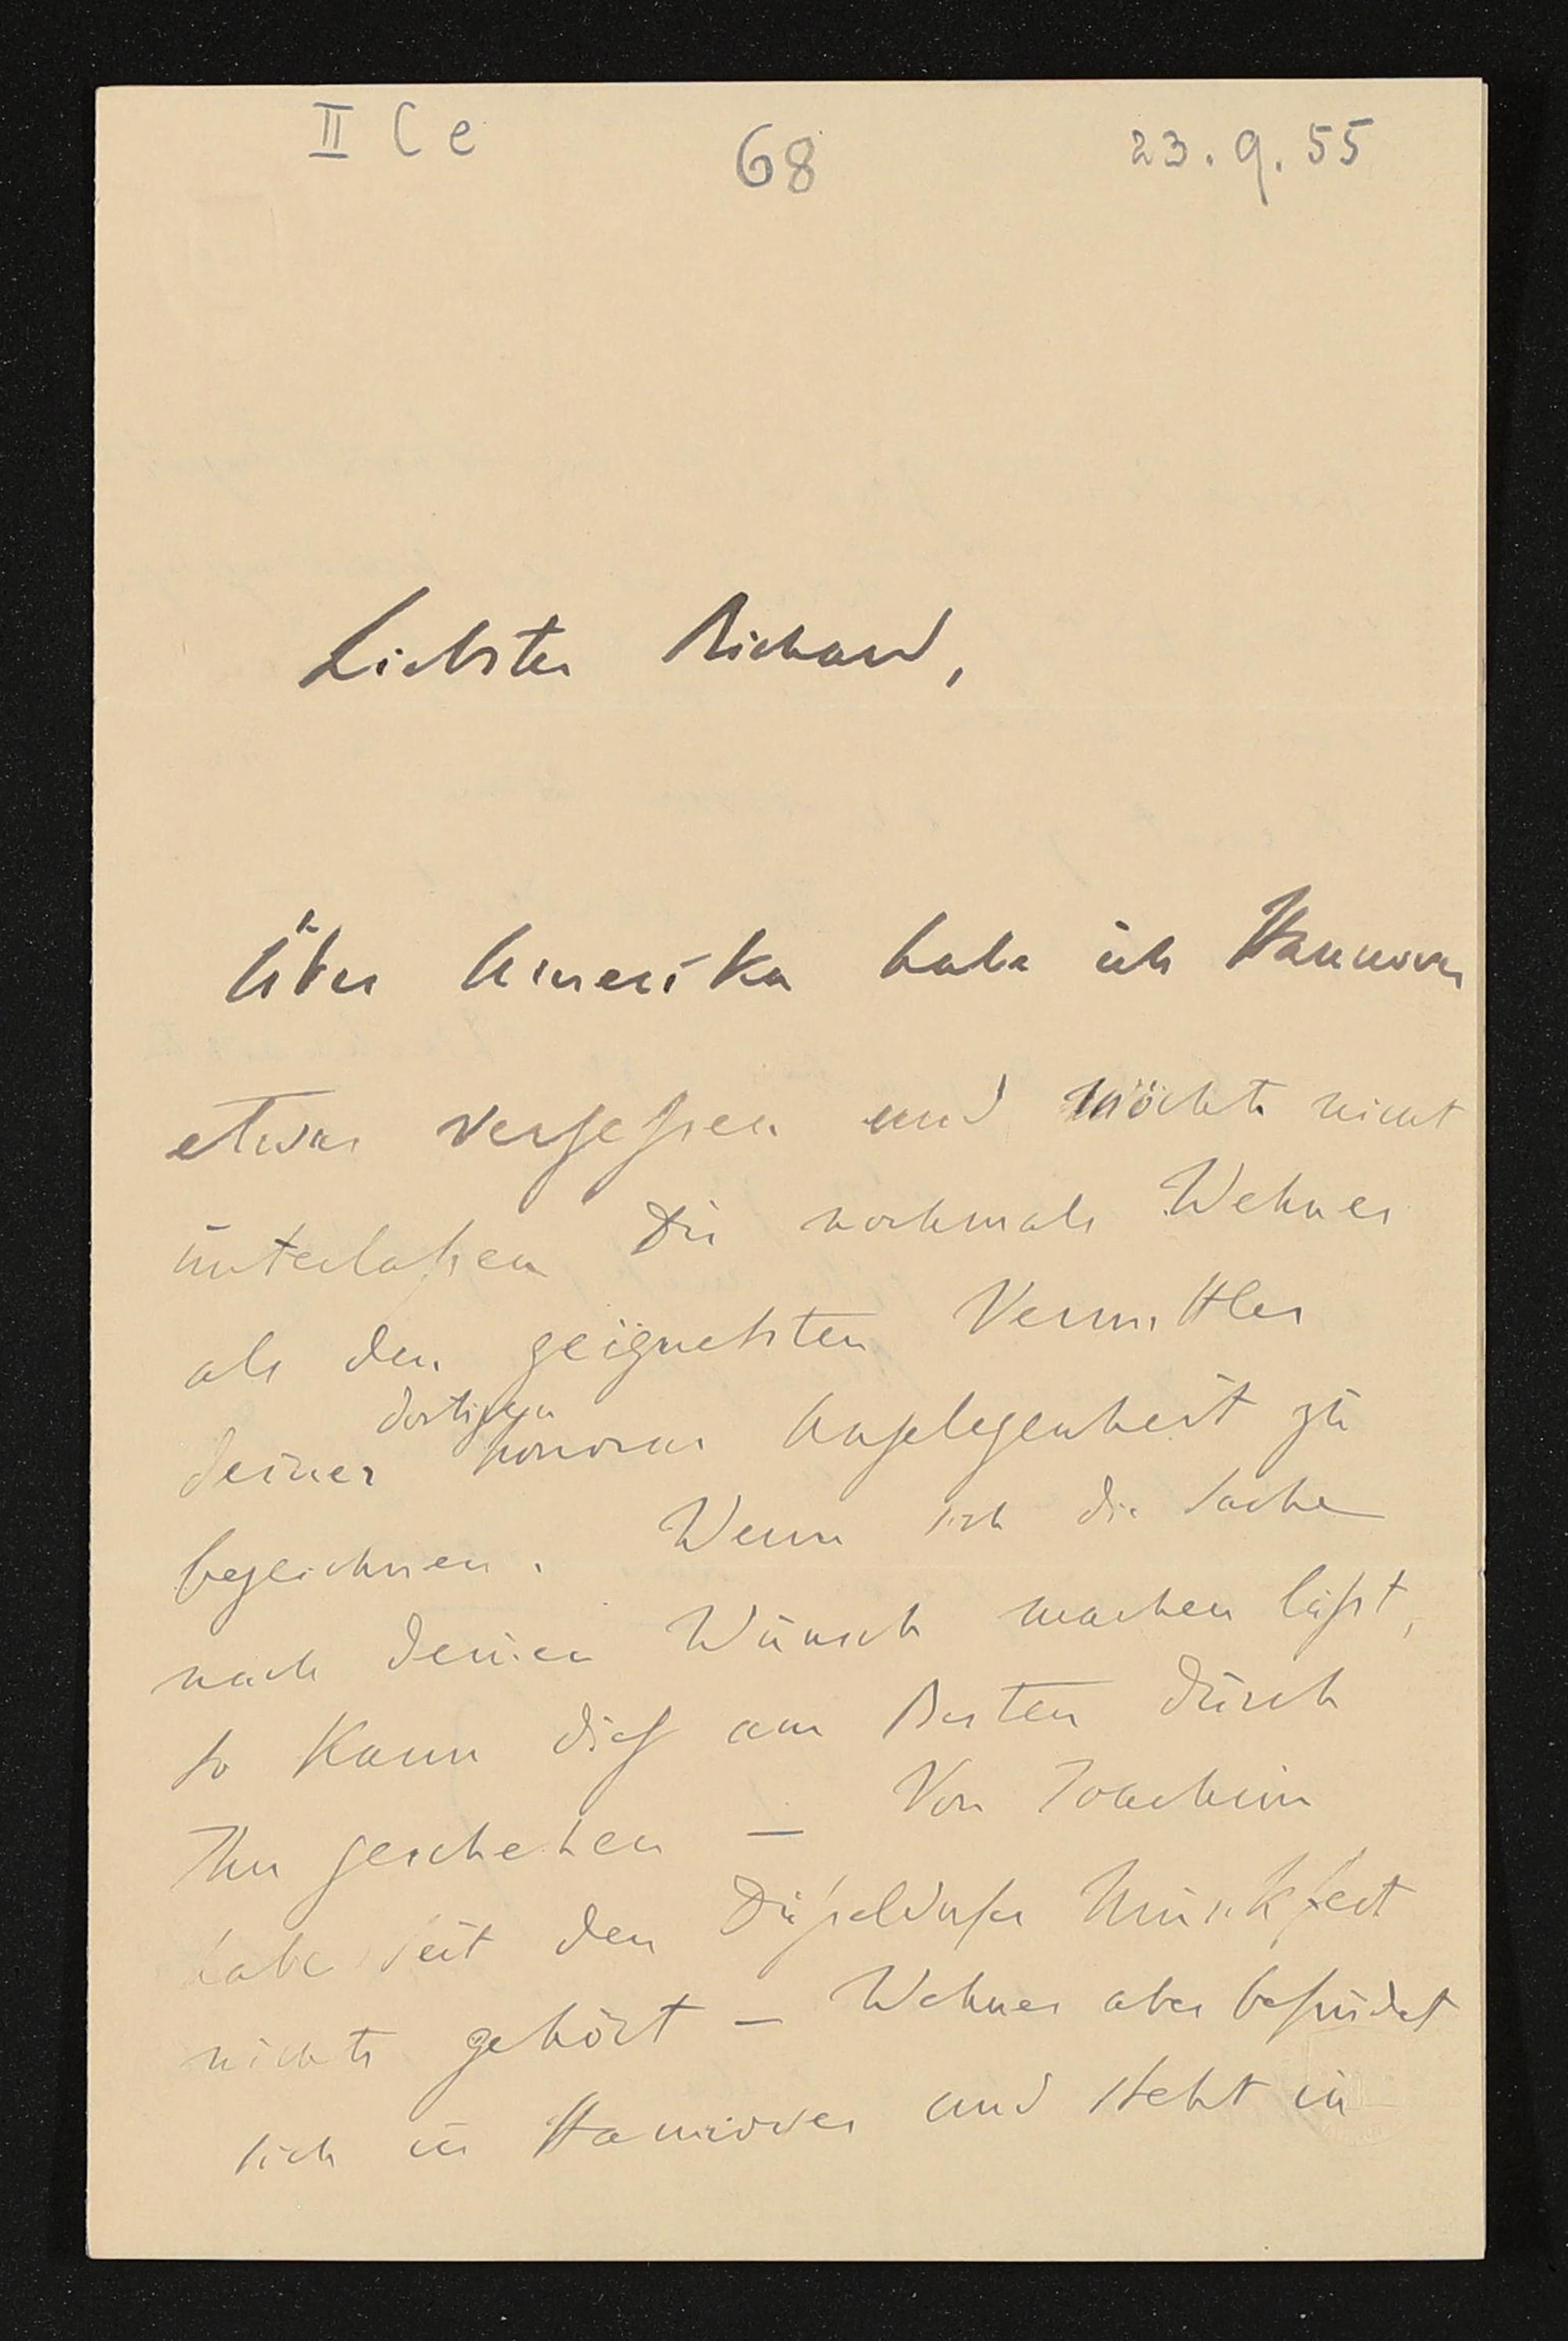 II C e 68 23.9.55
Liebster Richard,
Über Amerika habe ich Hannover
etwas vergeßen und möchte nicht
unterlaßen Dir nochmals Wehner
als den geignetsten Vermittler
dortigen
deiner Angelegenheit zu
bezeichnen. Wenn sich die Sache
nach deinen Wunsch machen läßt,
so kann dieß am Besten durch
Ihn geschehen – Von Joachim
habe seit den Düßeldorfer Musikfest
nichts gehört – Wehner aber befindet
sich in Hannover und steht in